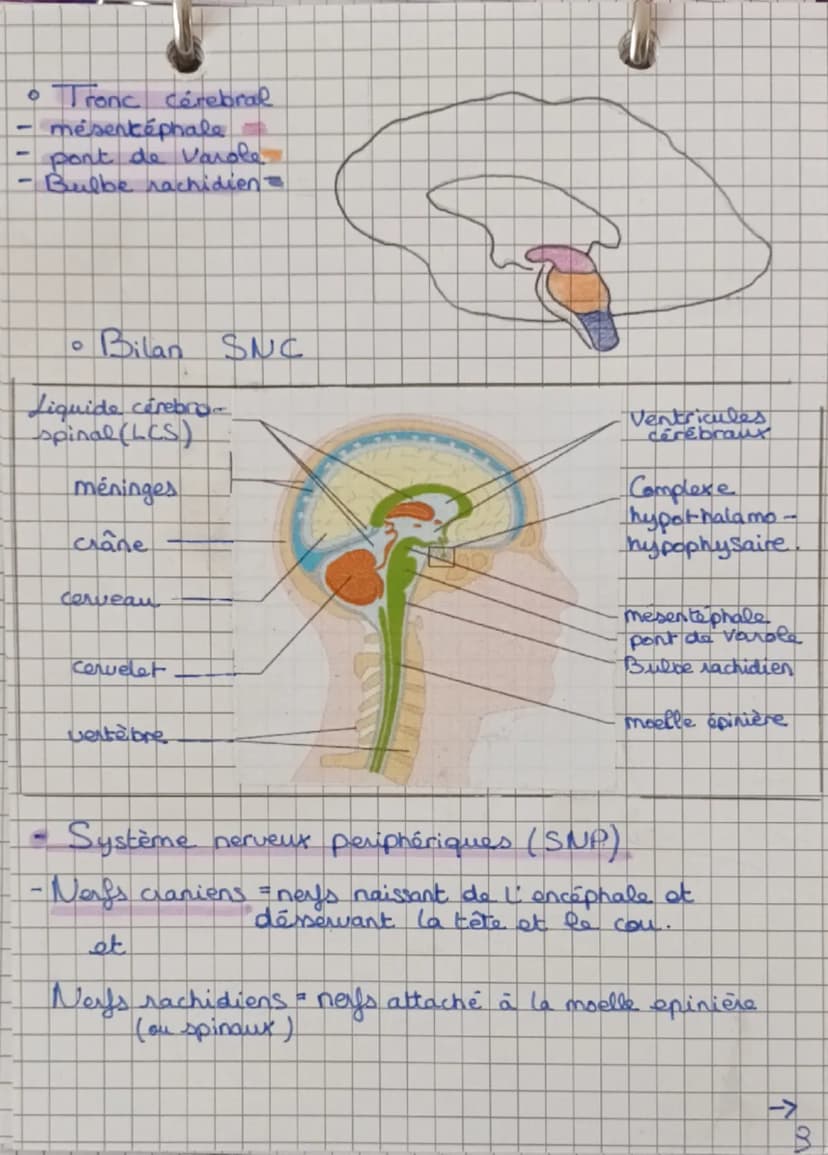 ° Tronc cérébral
- mésentéphale
- pont de Varole
- Bulbe rachidien
° Bilan SNC
Liquide cérébro-
spinal (LCS)
méninges
crâne
cerveau
cervelet
vertèbre
Ventricules
cérébraux
Complexe
hypothalamo-
hypophysaire.
mésentéphale
pont de Varole
Bulbe rachidien
moelle épinière
- Système nerveux periphériques (SNP)
- Nerfs craniens = nerfs naissant de l'encéphale et
désservant la tête et le cou.
et
Nerfs rachidiens = nerfs attaché à la moelle epinière
(ou spinaux)
→
3